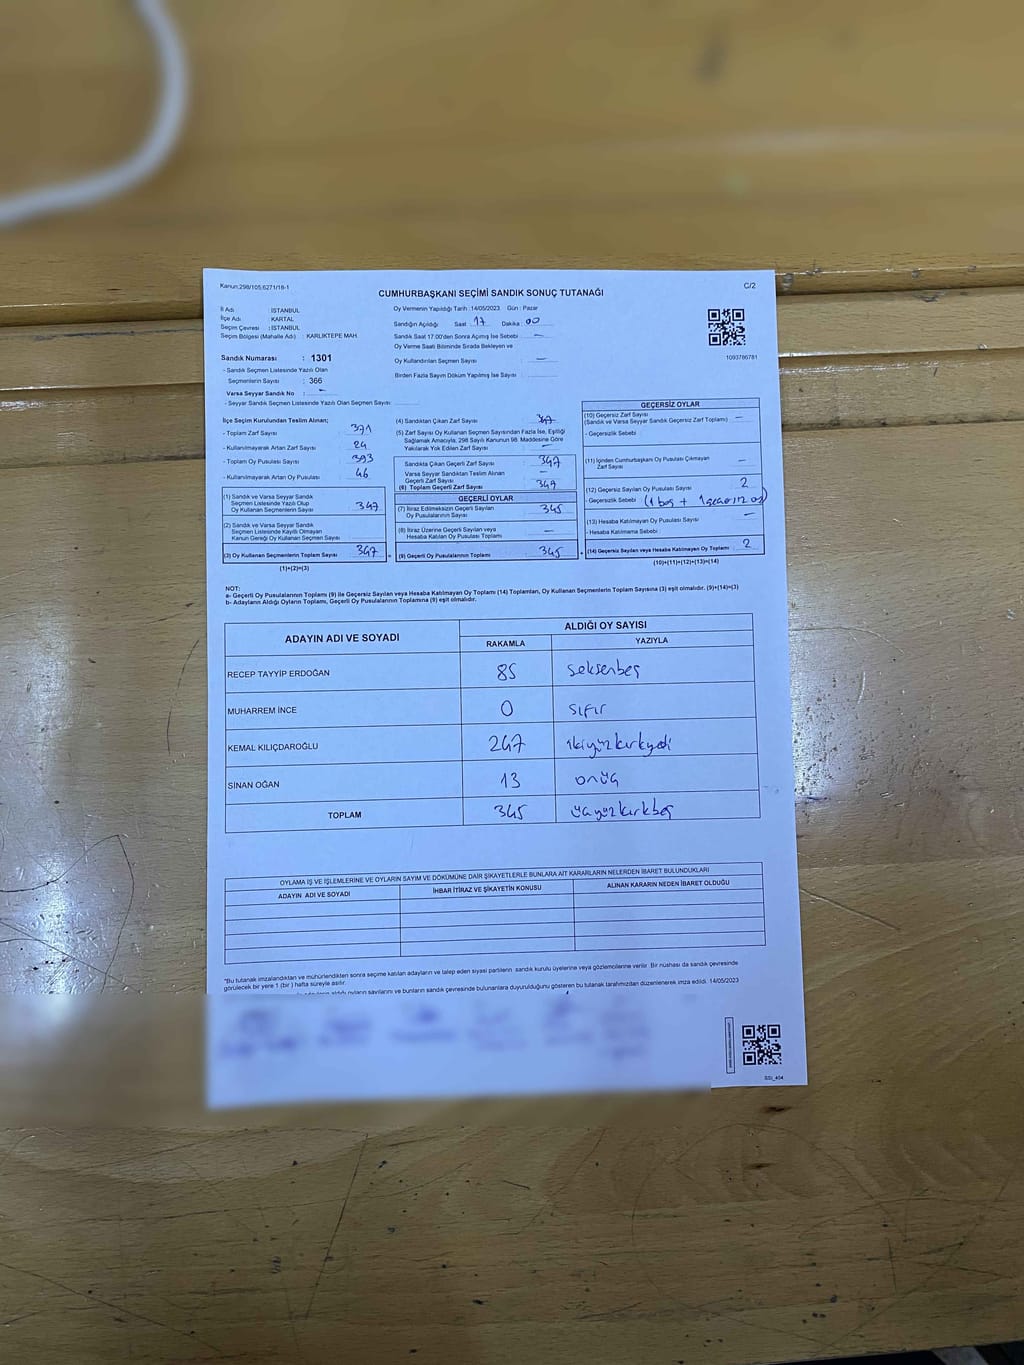 Kanun:298/105,6271/18-1
C/2
CUMHURBAŞKANI SEÇİMİ SANDIK SONUÇ TUTANAĞI
İl Adı : İSTANBUL
İlçe Adı : KARTAL
Seçim Çevresi : İSTANBUL
Seçim Bölgesi (Mahalle Adı) : KARLIKTEPE MAH.
Sandık Numarası : 1301
- Sandık Seçmen Listesinde Yazılı Olan
Seçmenlerin Sayısı : 366
Varsa Seyyar Sandık No : -
- Seyyar Sandık Seçmen Listesinde Yazılı Olan Seçmen Sayısı
Oy Vermenin Yapıldığı Tarih :14/05/2023 Gün : Pazar
Sandığın Açıldığı Saat : 17 Dakika : 00
Sandık Saat 17:00'den Sonra Açılmış İse Sebebi : —
Oy Verme Saati Bitiminde Sırada Bekleyen ve :
Oy Kullandırılan Seçmen Sayısı : —
Birden Fazla Sayım Döküm Yapılmış İse Sayısı :
1093786781
İlçe Seçim Kurulundan Teslim Alınan;
- Toplam Zarf Sayısı : 371
- Kullanılmayarak Artan Zarf Sayısı : 24
- Toplam Oy Pusulası Sayısı : 393
- Kullanılmayarak Artan Oy Pusulası : 46
(1) Sandık ve Varsa Seyyar Sandık
Seçmen Listesinde Yazılı Olup
Oy Kullanan Seçmenlerin Sayısı 347
(2) Sandık ve Varsa Seyyar Sandık
Seçmen Listesinde Kayıtlı Olmayan
Kanun Gereği Oy Kullanan Seçmen Sayısı
(3) Oy Kullanan Seçmenlerin Toplam Sayısı 347
(1)+(2)=(3)
(4) Sandıktan Çıkan Zarf Sayısı 347
(5) Zarf Sayısı Oy Kullanan Seçmen Sayısından Fazla İse, Eşitliği
Sağlamak Amacıyla, 298 Sayılı Kanunun 98. Maddesine Göre
Yakılarak Yok Edilen Zarf Sayısı —
Sandıkta Çıkan Geçerli Zarf Sayısı 347
Varsa Seyyar Sandıktan Teslim Alınan
Geçerli Zarf Sayısı —
(6) Toplam Geçerli Zarf Sayısı 347
GEÇERLİ OYLAR
(7) İtiraz Edilmeksizin Geçerli Sayılan
Oy Pusulalarının Sayısı 345
(8) İtiraz Üzerine Geçerli Sayılan veya
Hesaba Katılan Oy Pusulası Toplamı —
(9) Geçerli Oy Pusulalarının Toplamı 345
GEÇERSİZ OYLAR
(10) Geçersiz Zarf Sayısı
(Sandık ve Varsa Seyyar Sandık Geçersiz Zarf Toplamı) —
- Geçersizlik Sebebi
(11) İçinden Cumhurbaşkanı Oy Pusulası Çıkmayan
Zarf Sayısı —
(12) Geçersiz Sayılan Oy Pusulası Sayısı 2
- Geçersizlik Sebebi (1 boş + 1 geçersiz oy)
(13) Hesaba Katılmayan Oy Pusulası Sayısı —
- Hesaba Katılmama Sebebi
(14) Geçersiz Sayılan veya Hesaba Katılmayan Oy Toplamı 2
(10)+(11)+(12)+(13)=(14)
NOT:
a- Geçerli Oy Pusulalarının Toplamı (9) ile Geçersiz Sayılan veya Hesaba Katılmayan Oy Toplamı (14) Toplamları, Oy Kullanan Seçmenlerin Toplam Sayısına (3) eşit olmalıdır. (9)+(14)=(3)
b- Adayların Aldığı Oyların Toplamı, Geçerli Oy Pusulalarının Toplamına (9) eşit olmalıdır.
ADAYIN ADI VE SOYADI
ALDIĞI OY SAYISI
RAKAMLA YAZIYLA
RECEP TAYYİP ERDOĞAN 85 seksenbeş
MUHARREM İNCE 0 sıfır
KEMAL KILIÇDAROĞLU 247 ikiyüzkırkyedi
SİNAN OĞAN 13 onüç
TOPLAM 345 üçyüzkırkbeş
OYLAMA İŞ VE İŞLEMLERİNE VE OYLARIN SAYIM VE DÖKÜMÜNE DAİR ŞİKAYETLERLE BUNLARA AİT KARARLARIN NELERDEN İBARET BULUNDUKLARI
ADAYIN ADI VE SOYADI
İHBAR İTİRAZ VE ŞİKAYETİN KONUSU
ALINAN KARARIN NEDEN İBARET OLDUĞU
"Bu tutanak imzalandıktan ve mühürlendikten sonra seçime katılan adayların ve talep eden siyasi partilerin sandık kurulu üyelerine veya gözlemcilerine verilir. Bir nüshası da sandık çevresinde
görülecek bir yere 1 (bir) hafta süreyle asılır.
aldığı oyların sayılarını ve bunların sandık çevresinde bulunanlara duyurulduğunu gösteren bu tutanak tarafımızdan düzenlenerek imza edildi. 14/05/2023